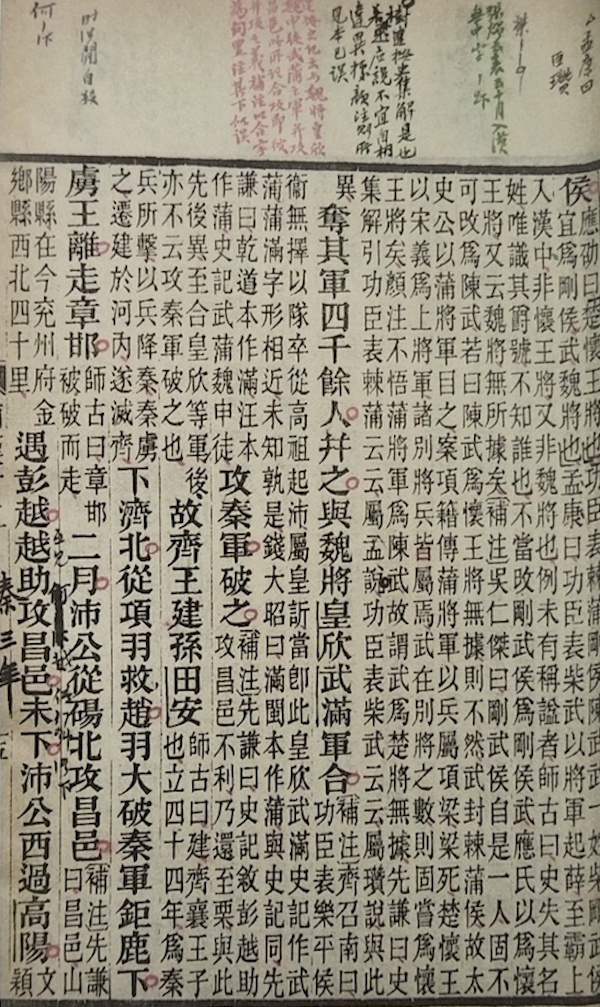 臣瓚
樹達按集解是也
應說不宜自相
違異
侯
應劭曰楚懷王將也功臣表棘蒲剛侯陳武武一姓柴剛武侯
宜爲剛侯武魏將也孟康曰功臣表柴武以將軍起薛至霸上
入漢中非懷王將又非魏將也例未有稱謚者師古曰史失其名
姓唯識其爵號不知誰也不當改剛武侯爲剛侯武應氏以爲懷
王將又云魏將無所據矣補注吳仁傑曰剛武侯自是一人固不
可改爲陳武若曰陳武爲懷王將無據則不然武封棘蒲侯故太
史公以蒲將軍目之案項籍傳蒲將軍以兵屬項梁梁死楚懷王
以宋義爲上將軍諸別將兵皆屬焉武在別將之數則固當爲懷
王將矣顏注不悟蒲將軍爲陳武故謂武爲楚將無據先謙曰史
集解引功臣表棘蒲云云屬孟說功臣表柴武云云屬瓚說與此
異
奪其軍四千餘人幷之與魏將皇欣武滿軍合
補注齊召南曰
功臣表樂平侯
衛無擇以隊卒從高祖起沛屬皇訢當卽此皇欣武滿史記作武
蒲蒲滿字形相近未知孰是錢大昭曰滿閩本作蒲與史記同先
謙曰乾道本作滿汪本
作蒲史記武蒲魏申徒
攻秦軍破之
補注先謙曰史記敘彭越助
攻昌邑不利乃還至栗與此
先後異至合皇欣等軍
亦不云攻秦軍破之也
後故齊王建孫田安
師古曰建齊襄王子
也立四十四年爲秦
兵所擊以兵降秦秦虜
之遷建於河內遂滅齊
下濟北從項羽救趙羽大破秦軍鉅鹿下
虜王離走章邯
師古曰章邯
被破而走
二月沛公從碭北攻昌邑
補注先謙
曰昌邑山
陽縣在今兗州府金
鄉縣西北四十里
遇彭越越助攻昌邑未下沛公西過高陽
文
穎
秦三年